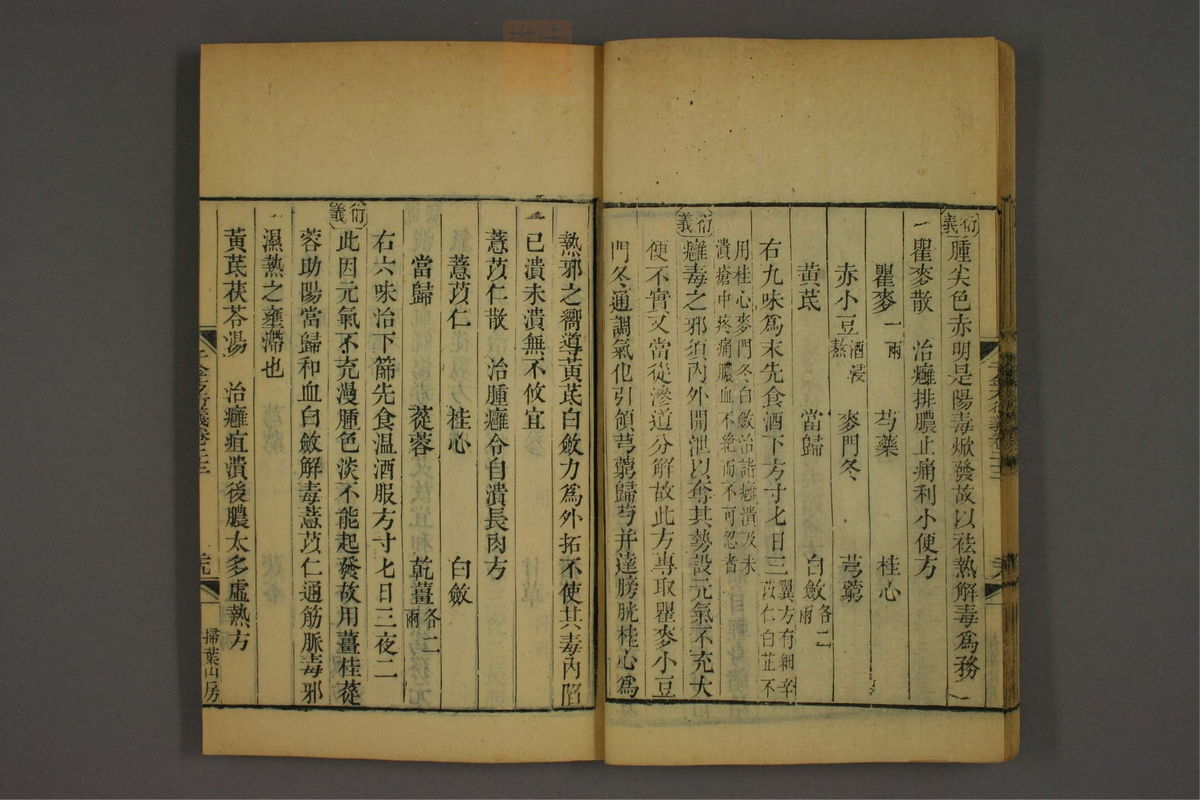 衍義腫尖色赤明是陽毒焮發故以祛熱解毒爲務
一瞿麥散　治癰排膿止痛利小便方
瞿麥一兩　芍藥　桂心
赤小豆酒浸熬　麥門冬　芎藭
黃芪　當歸　白斂各二兩
右九味爲末先食酒下方寸匕日三翼方有細辛薏苡仁白芷不
用桂心麥門冬白斂治諸癰潰及未
潰瘡中疼痛膿血不絶而不可忍者
衍義癰毒之邪須內外開泄以奪其勢設元氣不充大
便不實又當從滲道分解故此方專取瞿麥小豆
門冬通調氣化引領芎藭歸芍并達膀胱桂心爲
熱邪之嚮導黃芪白斂力爲外拓不使其毒內陷
已潰未潰無不攸宜
薏苡仁散　治腫癰令自潰長肉方
薏苡仁　桂心　白斂
當歸　蓯蓉　乾薑各二兩
右六味治下篩先食温酒服方寸匕日三夜二
衍義此因元氣不充漫腫色淡不能起發故用薑桂蓯
蓉助陽當歸和血白斂解毒薏苡仁通筋脈毒邪
濕熱之壅滯也
黃芪茯苓湯　治癰疽潰後膿太多虛熱方
掃葉山房